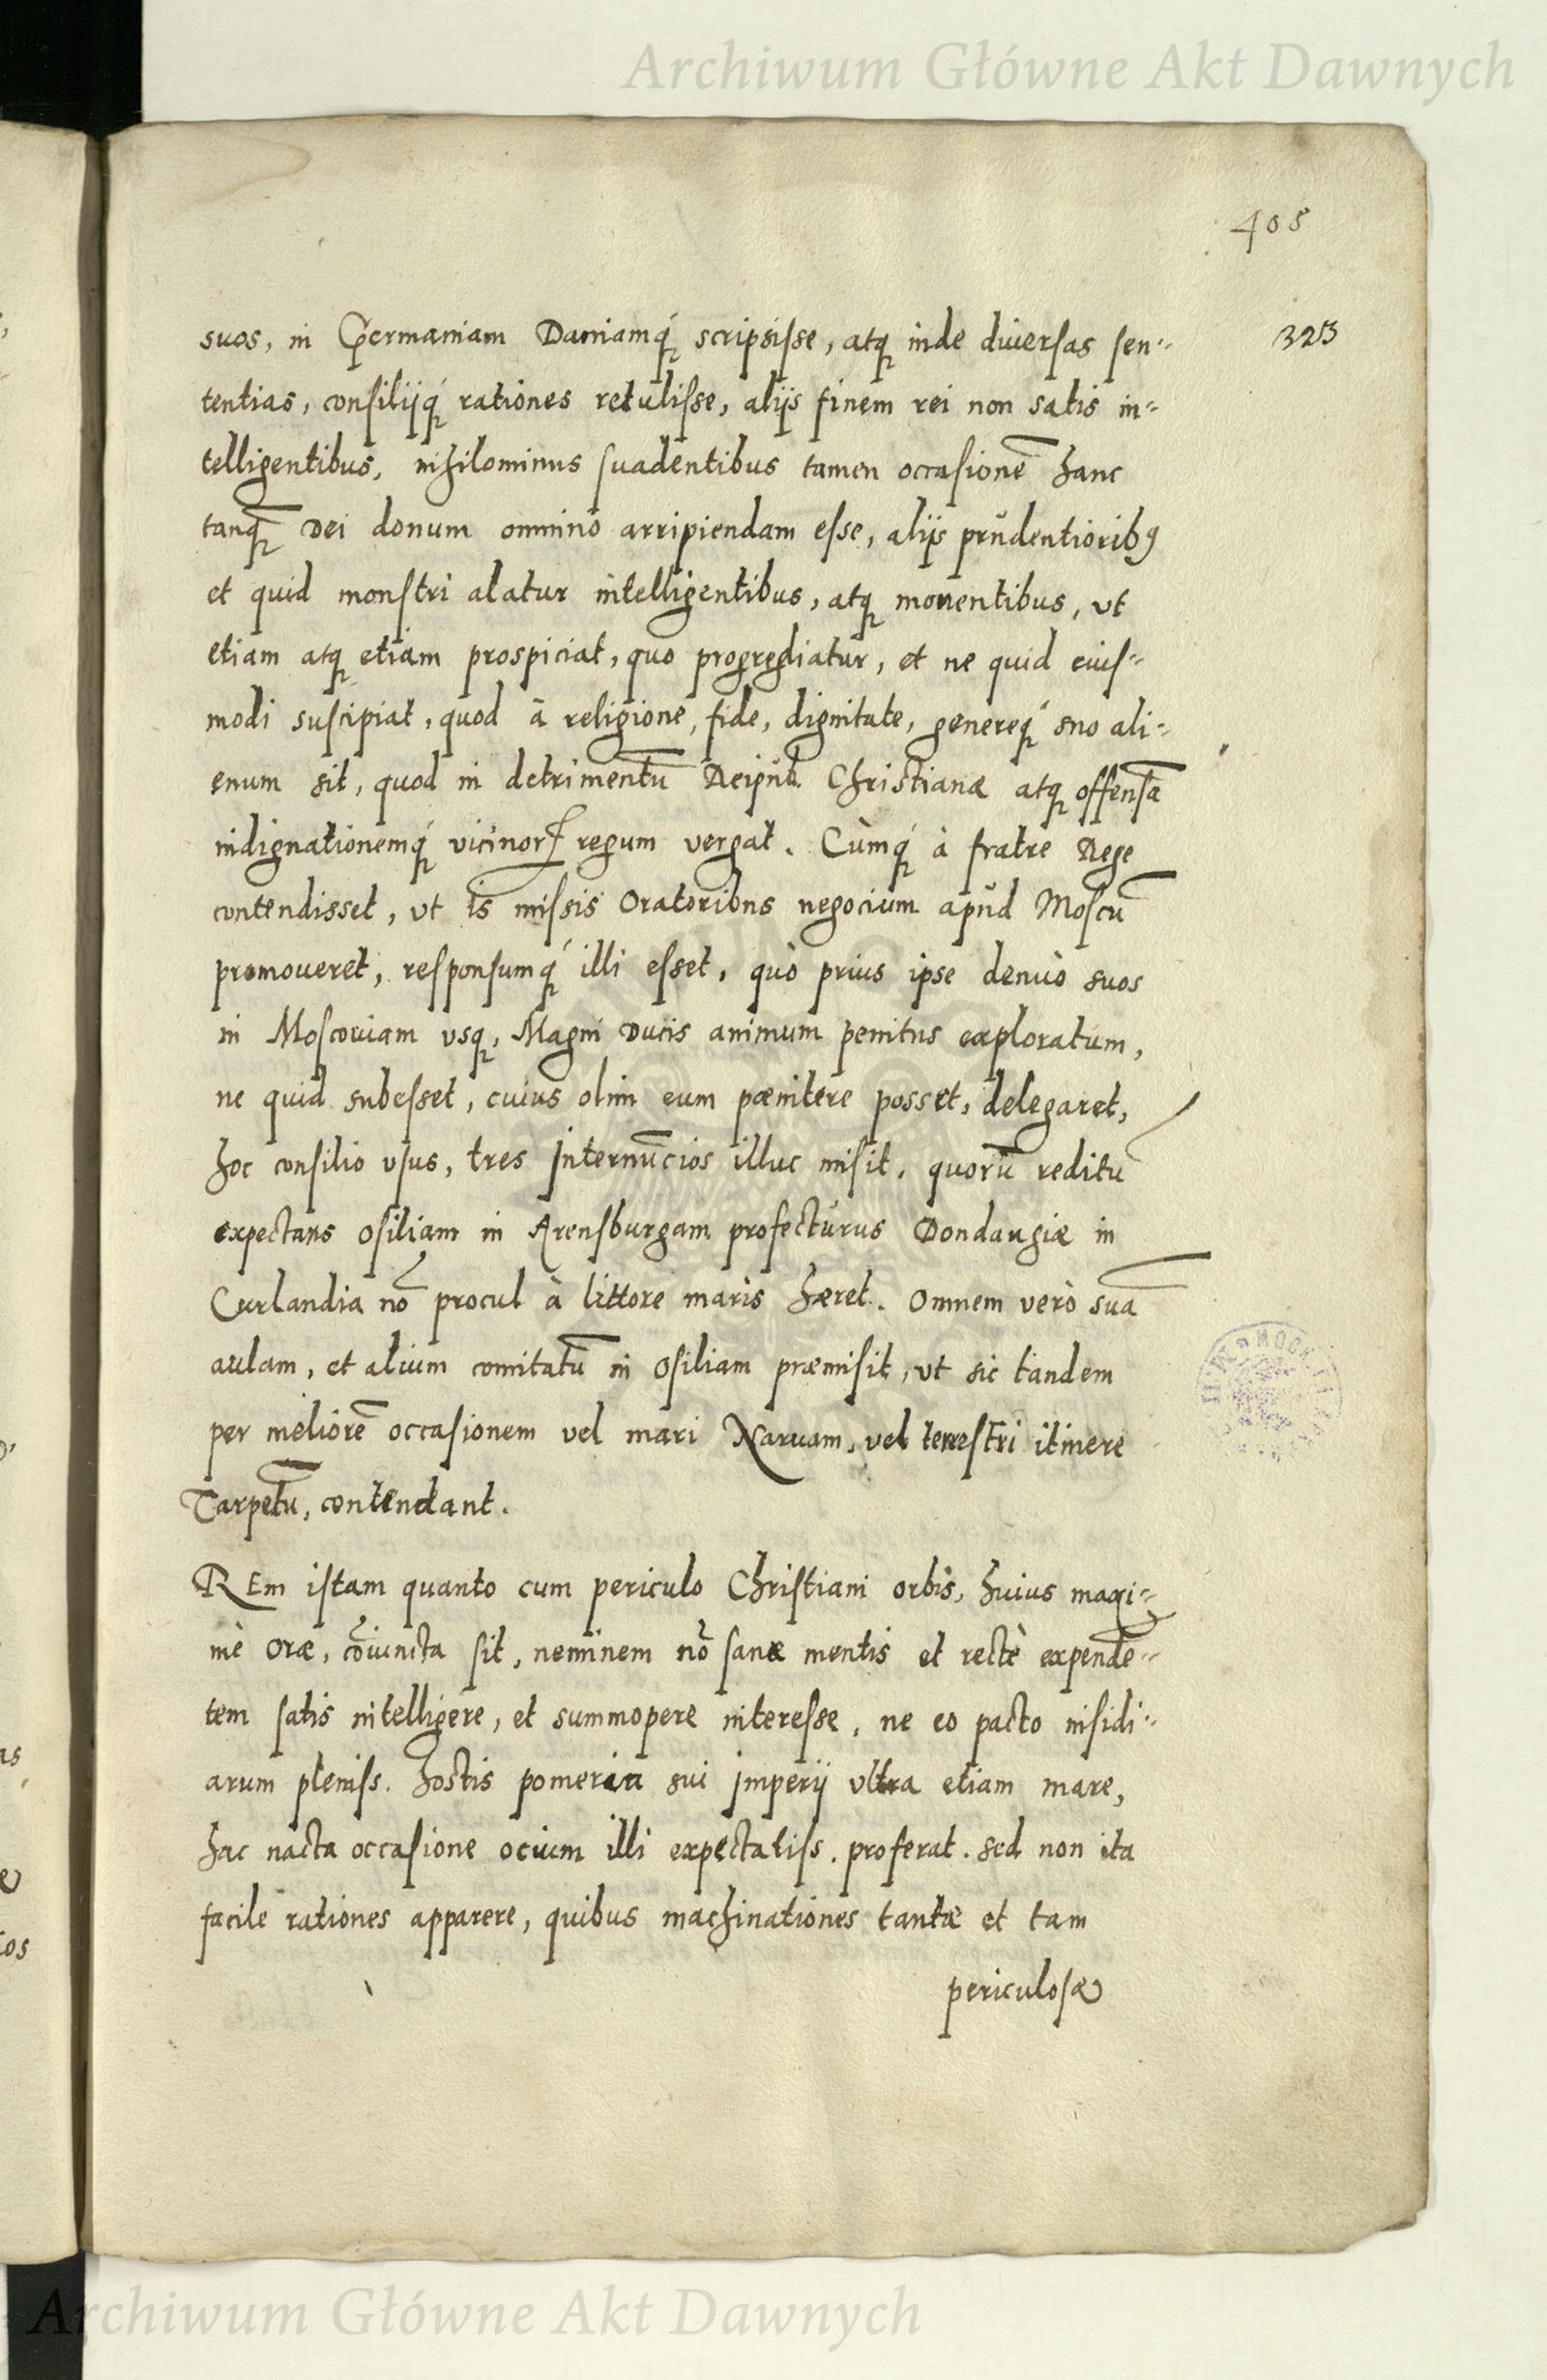 Archiwum Główne Akt Dawnych
405
323
suos, in Germaniam Daniamq́ scripsisse, atq inde diuersas sen-
tentias, consilijq́ rationes retulisse, alijs finem rei non satis in-
telligentibus, nihilominus suadentibus tamen occasionē hanc
tanq̄ Dei donum omnino arripiendam esse, alijs prudentiorib9
et quid monstri alatur intelligentibus, atq monentibus, vt
etiam atq etiam prospiciat, quo progrediatur, et ne quid eius-
modi suscipiat, quod à religione, fide, dignitate, genereq́ suo ali-
enum sit, quod in detrimentū Reipub. Christianæ atq offensā
indignationemq́ vicinorꝝ regum vergat. Cùmq́ à fratre Rege
contendisset, vt is missis Oratoribus negocium apud Moscū
promoueret, responsumq́ illi esset, quò prius ipse denuò suos
in Moscouiam vsq, Magni Ducis animum penitus exploratum,
ne quid subesset, cuius olim eum pœnitere posset, delegaret,
hoc consilio vsus, tres internūcios illuc misit, quorū reditū
expectans Osiliam in Arensburgam profecturus Dondangiæ in
Curlandia nō procul à littore maris hæret. Omnem verò suā
aulam, et alium comitatū in Osiliam præmisit, vt sic tandem
per meliorē occasionem vel mari Naruam, vel terrestri itinere
Tarpetū, contendant.
REm istam quanto cum periculo Christiani orbis, huius maxi-
mè oræ, cōiuncta sit, neminem nō sanæ mentis et rectè expendē-
tem satis intelligere, et summopere interesse, ne eo pacto insidi-
arum pleniss. hostis pomeria sui imperij vltra etiam mare,
hac nacta occasione ocium illi expectatiss. proferat. sed non ita
facile rationes apparere, quibus machinationes tantæ et tam
periculosæ
Archiwum Główne Akt Dawnych